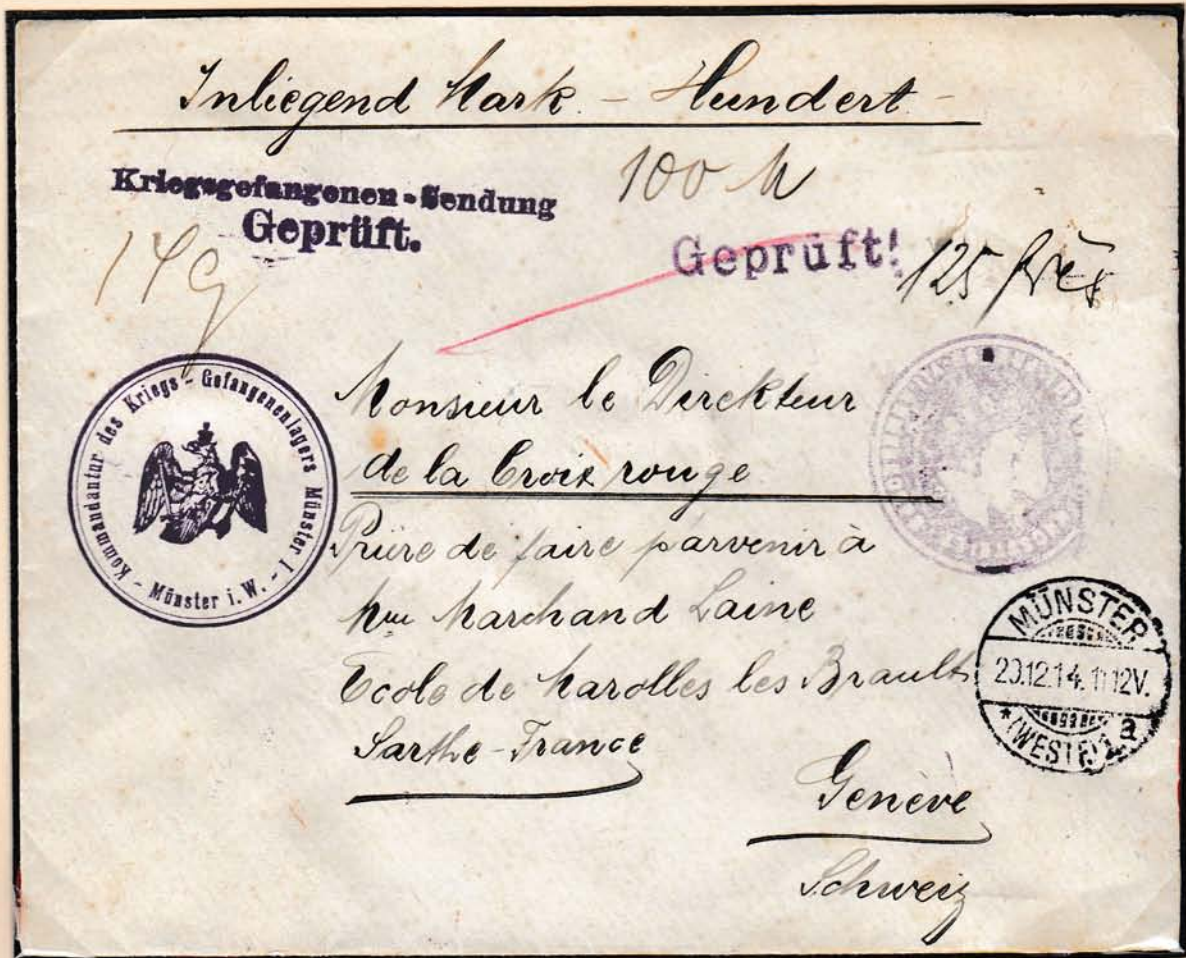 Inliegend Mark. - Hundert -
100 M
Kriegsgefangenen-Sendung
Geprüft.
Geprüft!
125 frcs
Kommandantur des Kriegs-Gefangenenlagers Münster I - Münster i. W. -
Monsieur le Direkteur
de la Croix rouge
Prière de faire parvenir à
Mme Marchand Laine
Ecole de Marolles les Brault
Sarthe-France
MÜNSTER
20.12.14. 11-12V.
*(WESTF.) 1 a
Genève
Schweiz